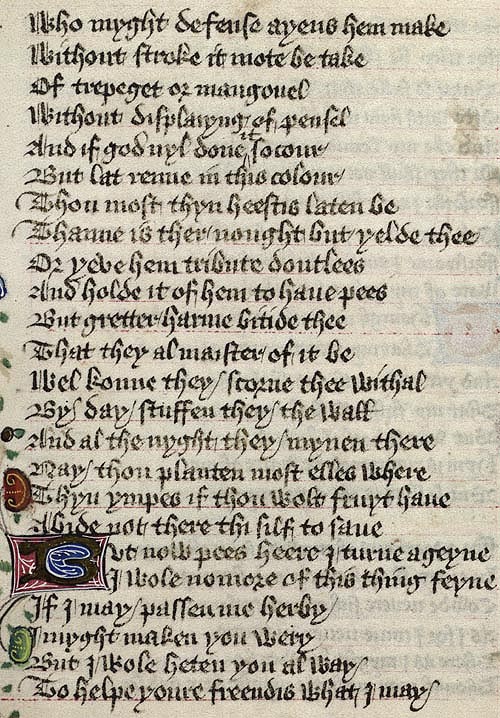 Who myght defense ayens hem make
Without stroke it mote be take
Of trepeget or mangonel
Without displaiyng of pensel
And if god nyl done it socour
But lat renne in this colour
Thou most thyn heestis laten be
Thanne is ther nought but yelde thee
Or yeve hem tribute doutlees
And holde it of hem to haue pees
But gretter harme bitide thee
That they al maister of it be
Wel konne they scorne thee withal
By day stuffen they the wall
And al the nyght they mynen there
Nay thou planten most elles where
Thyn ympes if thou wolt fruyt haue
Abide not there thi silf to saue
But now pees heere I turne ageyne
I wole no more of this thing feyne
If I may passen me herby
I myght maken you wery
But I wole heten you al way
To helpe youre freendis what I may